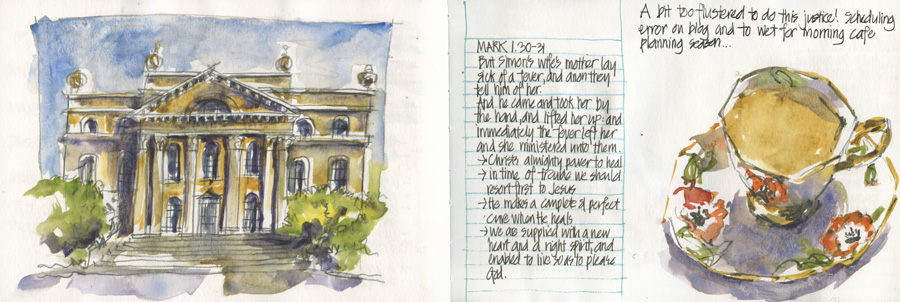 MARK 1.30-31
But Simon's wife's mother lay
sick of a fever, and anon they
tell him of her.
And he came and took her by
the hand, and lifted her up: and
immediately the fever left her
and she ministered unto them.
→ Christs almighty power to heal
→ in time of trouble we should
resort first to Jesus
→ He makes a complete & perfect
cure when He heals
→ we are supplied with a new
heart and a right spirit, and
enabled to live so as to please
God.
A bit too flustered to do this justice! scheduling
error on blog and to wet for morning cafe
planning season...